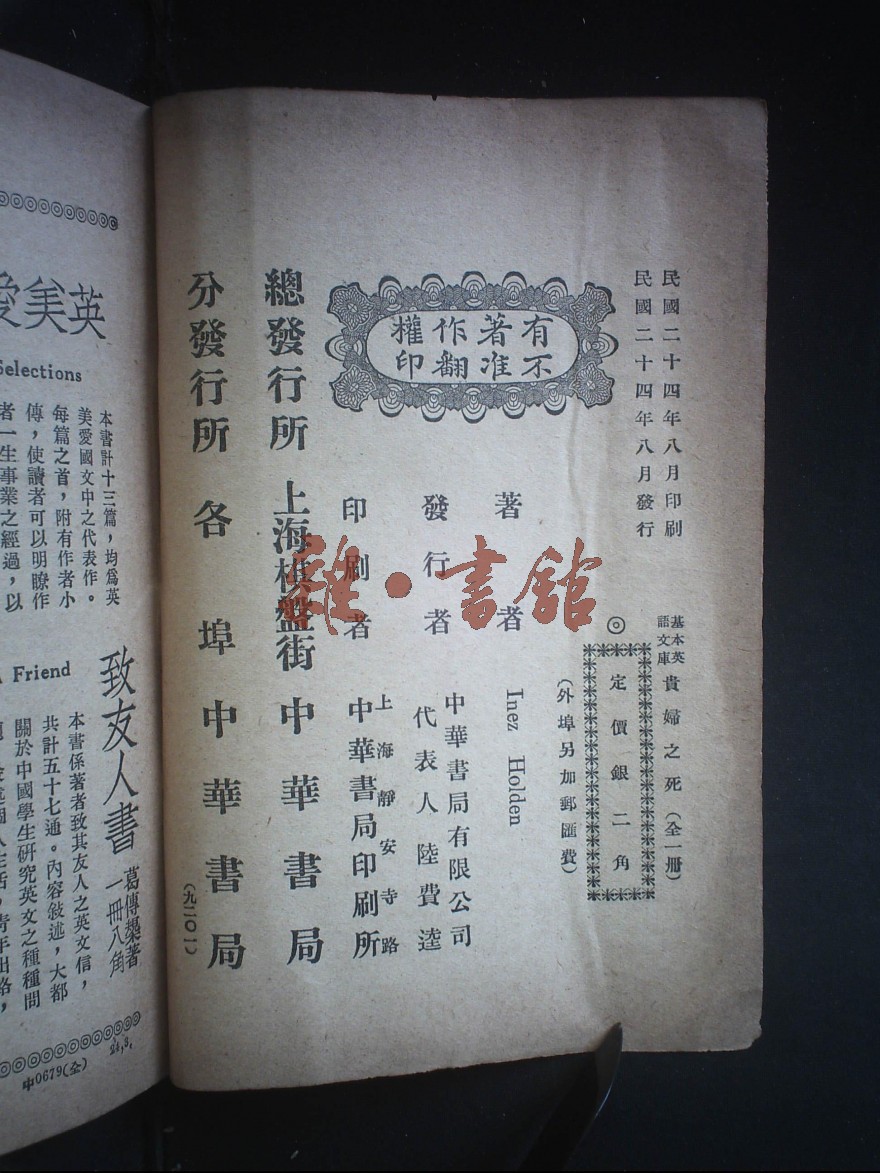 民國二十四年八月印刷
民國二十四年八月發行
基本英
語文庫
貴婦之死（全一冊）
◎定價銀二角
（外埠另加郵匯費）
有著作權
不准翻印
著者
Inez Holden
發行者
中華書局有限公司
代表人陸費逵
印刷者
上海靜安寺路
中華書局印刷所
總發行所 上海棋盤街 中華書局
分發行所 各埠 中華書局
（九二〇一）
雜·書館
英美愛
Selections
本書計十三篇，均爲英
美愛國文中之代表作。
每篇之首，附有作者小
傳，使讀者可以明瞭作
者一生事業之經過，以
Friend
致友人書
葛傳槼著
一冊八角
本書係著者致其友人之英文信，
共計五十七通。內容敍述，大都
關於中國學生硏究英文之種種問
中0679(全)
24,8,